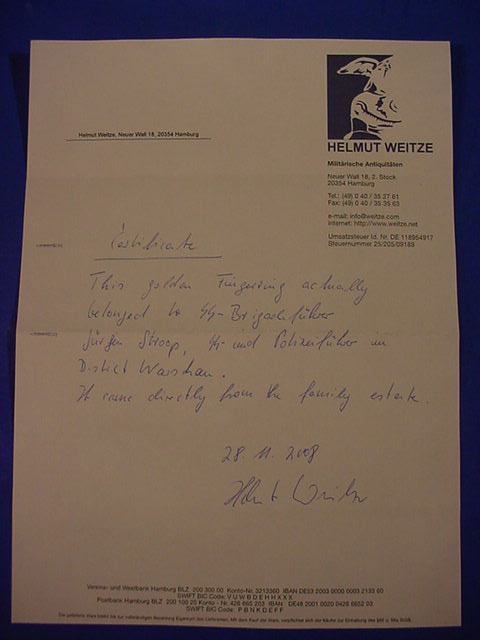 HELMUT WEITZE
Helmut Weitze, Neuer Wall 18, 20354 Hamburg
Militärische Antiquitäten
Neuer Wall 18, 2. Stock
20354 Hamburg
Tel.: (49) 0 40 / 35 27 61
Fax: (49) 0 40 / 35 35 63
e-mail: info@weitze.com
Internet: http://www.weitze.net
Umsatzsteuer Id. Nr. DE 118954917
Steuernummer 25/205/09189
Certificate
This golden Fingerring actually
belonged to SS-Brigadeführer
Jürgen Stroop, SS- und Polizeiführer im
District Warschau.
It came directly from the family estate.
28. 11. 2008
Helmut Weitze
Vereins- und Westbank Hamburg BLZ 200 300 00 Konto-Nr. 3213360 IBAN DE53 2003 0000 0003 2133 60
SWIFT BIC Code: V U W B D E H H X X X
Postbank Hamburg BLZ 200 100 20 Konto - Nr. 428 665 203 IBAN DE48 2001 0020 0428 6652 03
SWIFT BIC Code: P B N K D E F F